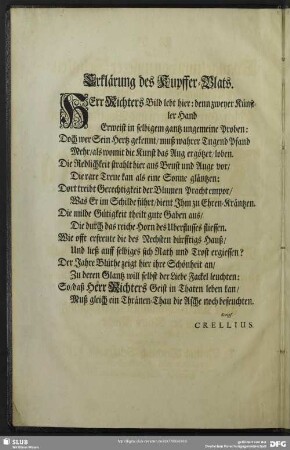 Erklärung des Kupffer-Blats.
HErr Richters Bild lebt hier: denn zweyer Künst-
ler Hand
Erweist in selbigem gantz ungemeine Proben:
Doch wer Sein Hertz gekennt/ muß wahrer Tugend Pfand
Mehr/ als womit die Kunst das Aug ergötzet/ loben.
Die Redlichkeit strahlt hier aus Brust und Auge vor/
Die rare Treue kan als eine Sonne gläntzen:
Dort treibt Gerechtigkeit der Blumen Pracht empor/
Was Er im Schilde führt/ dient Jhm zu Ehren-Kräntzen.
Die milde Gütigkeit theilt gute Gaben aus/
Die durch das reiche Horn des Uberflusses fliessen.
Wie offt erfreute die des Nechsten dürfftigs Hauß/
Und ließ auff selbiges sich Rath und Trost ergiessen?
Der Jahre Blüthe zeigt hier ihre Schönheit an/
Zu deren Glantz will selbst der Liebe Fackel leuchten:
So/ daß Herr Richters Geist in Thaten leben kan/
Muß gleich ein Thränen-Thau die Asche noch befeuchten.
CRELLIUS.
SLUB
Wir führen Wissen.
gefördert von der
DFG